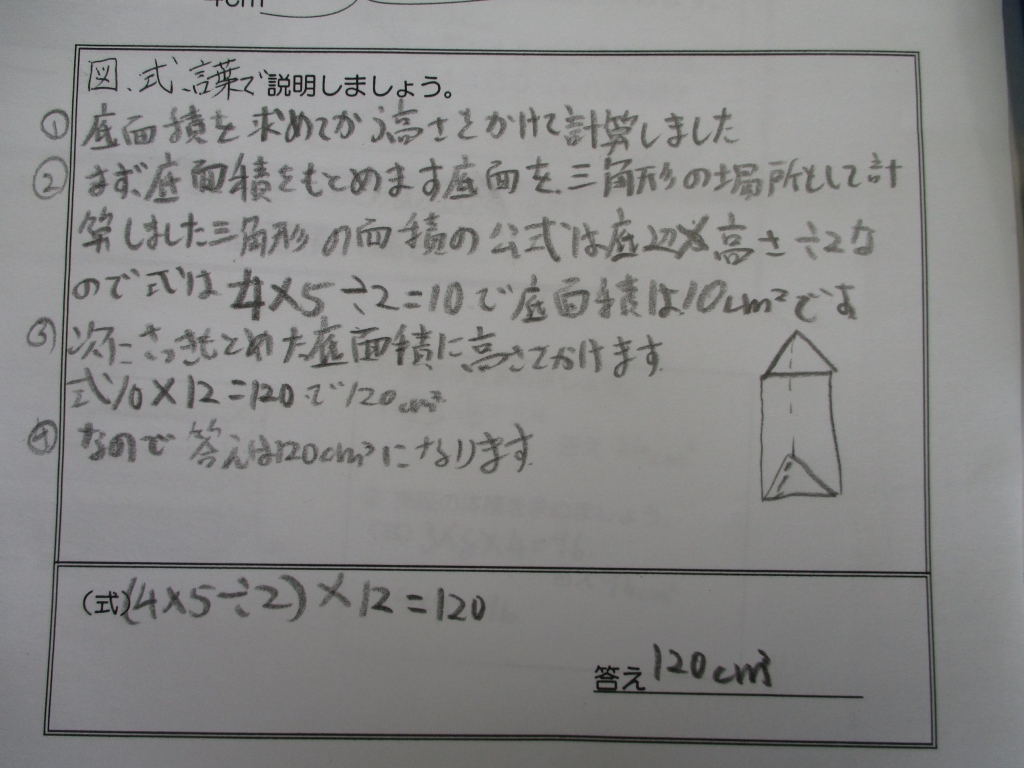 4cm
図、式、言葉で説明しましょう。
① 底面積を求めてから高さをかけて計算しました
② まず、底面積をもとめます底面を、三角形の場所として計
算しました三角形の面積の公式は底辺×高さ÷2な
ので式は 4×5÷2=10で底面積は10cm²です
③ 次にさっきもとめた底面積に高さをかけます
式10×12=120で120cm³
④ なので答えは120cm³になります
(式)(4×5÷2)×12=120
答え 120cm³